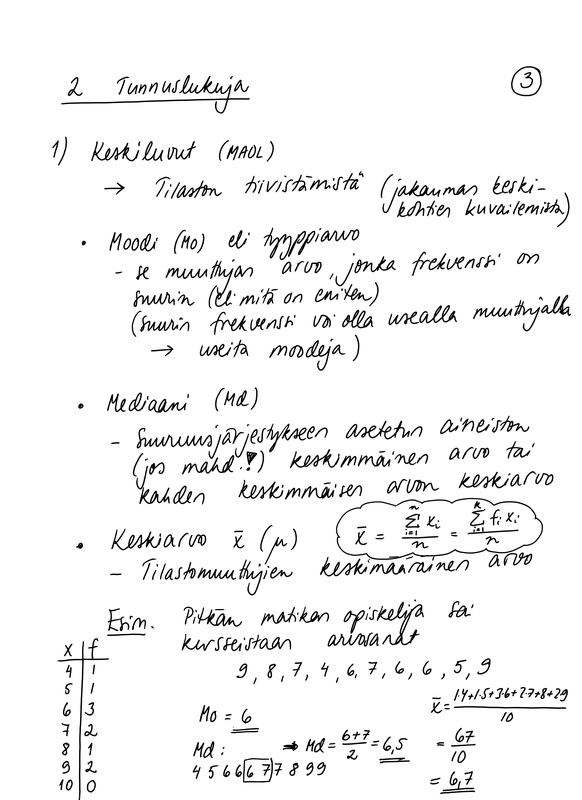 2 Tunnuslukuja
3
1) Keskiluvut (MAOL)
→ Tilaston tiivistämistä (jakauman keski-
kohtien kuvailemista)
• Moodi (Mo) eli tyyppiarvo
- se muuttujan arvo, jonka frekvenssi on
suurin (eli mitä on eniten)
(suurin frekvenssi voi olla usealla muuttujalla
→ useita moodeja)
• Mediaani (Md)
- Suuruusjärjestykseen asetetun aineiston
(jos mahd.!) keskimmäinen arvo tai
kahden keskimmäisen arvon keskiarvo
• Keskiarvo x̄ (μ)
x̄ = ∑ᵢ₌₁ⁿ xᵢ / n = ∑ᵢ₌₁ᵏ fᵢ xᵢ / n
- Tilastomuuttujien keskimääräinen arvo
Esim. Pitkän matikan opiskelija sai
kursseistaan arvosanat
9, 8, 7, 4, 6, 7, 6, 6, 5, 9
x f
4 1
5 1
6 3
7 2
8 1
9 2
10 0
Mo = 6
Md:
4 5 6 6 6 7 7 8 9 9
→ Md = 6+7 / 2 = 6,5
x̄ = 1·4+1·5+3·6+2·7+8+2·9 / 10
= 67 / 10
= 6,7